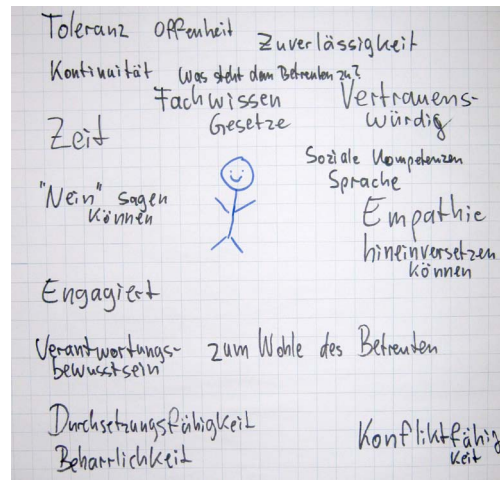 Toleranz Offenheit Zuverlässigkeit
Kontinuität Was steht dem Betreuten zu?
Fachwissen
Gesetze
Vertrauens-
würdig
Zeit
Soziale Kompetenzen
Sprache
"Nein" sagen
können
Empathie
hineinversetzen
können
Engagiert
Verantwortungs-
bewusstsein
zum Wohle des Betreuten
Durchsetzungsfähigkeit
Beharrlichkeit
Konfliktfähig
keit